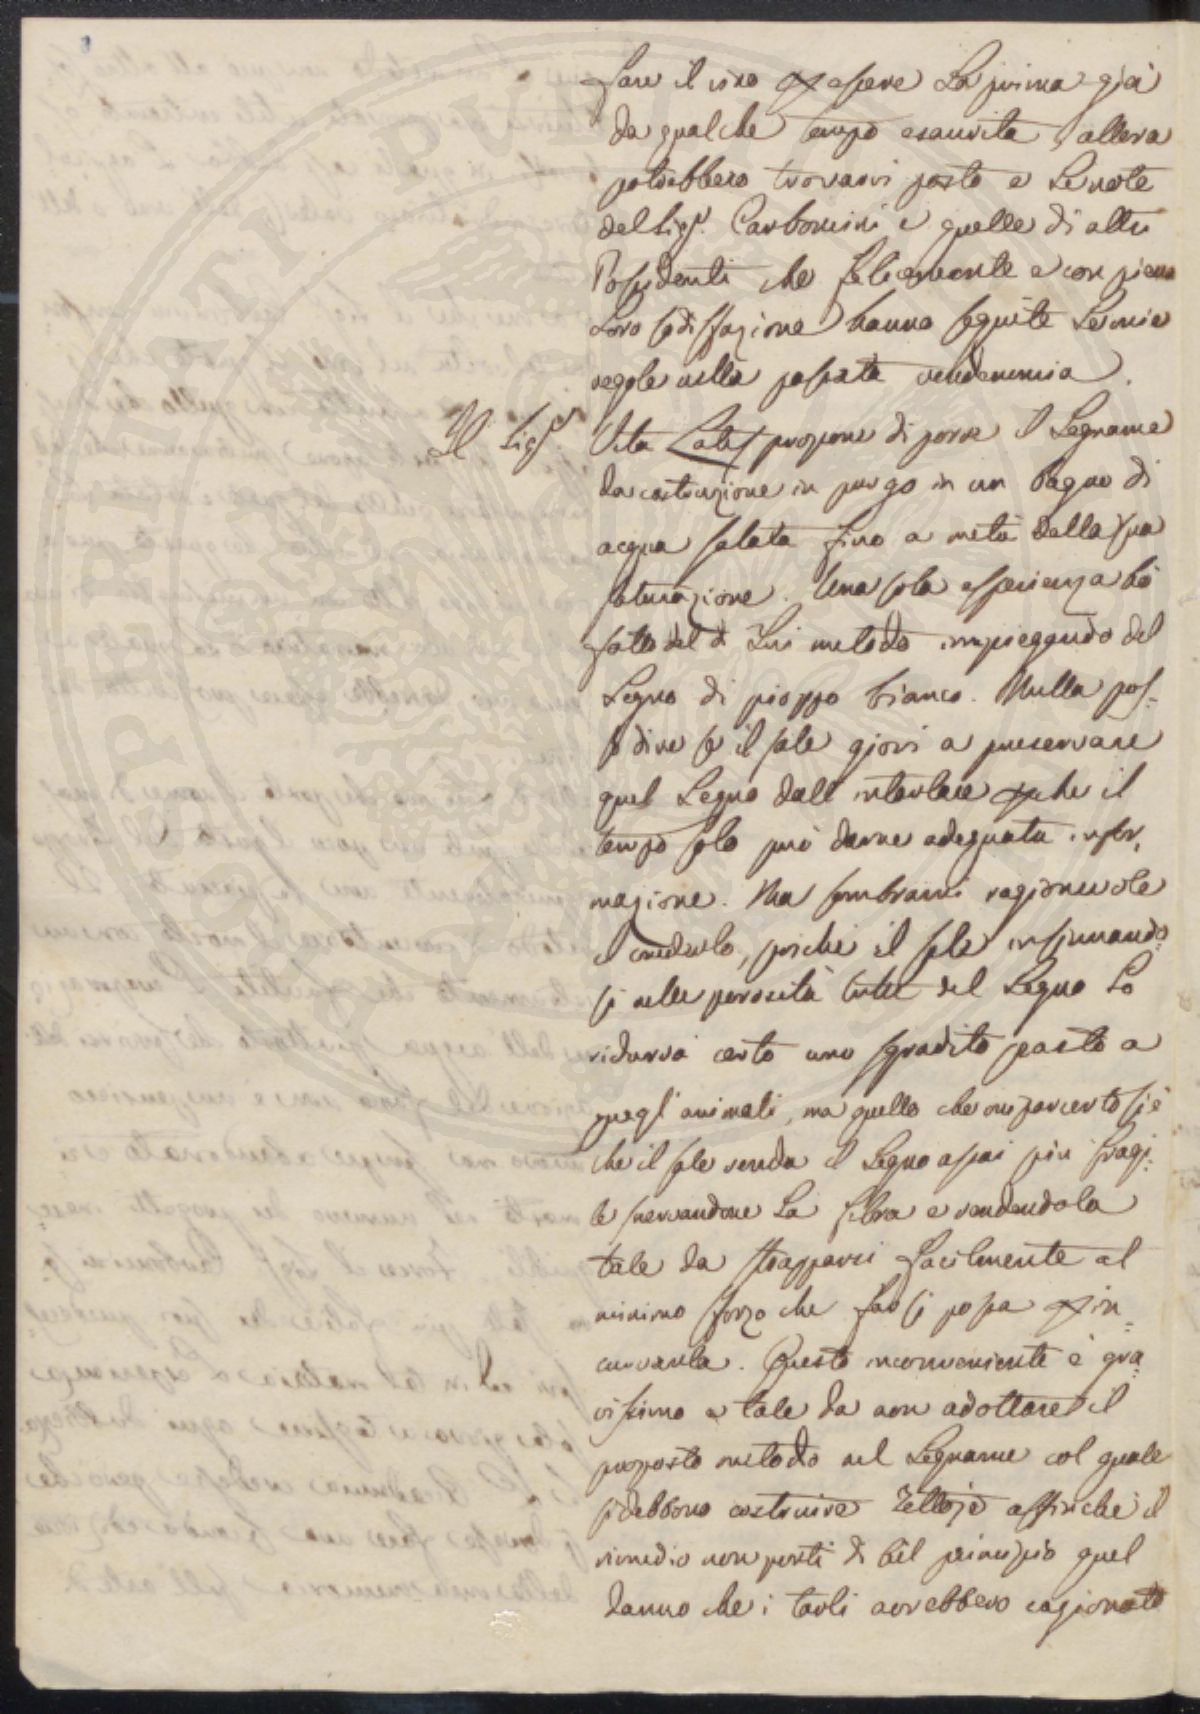 fare il vino p essere La prima già
da qualche tempo esaurita, allora
potrebbero trovarvi posto e Le note
del Sigr. Carboncini e quelle di altri
Possidenti che felicemente e con piena
Loro sodisfazione hanno seguite Le mie
regole nella passata vendemmia.
Il Sigr. Vita propone di porre il Legname
da costruzione in purgo in un bagno di
acqua salata fino a metà della sua
saturazione. Una sola esperienza hò
fatto del di Lui metodo impiegando del
Legno di pioppo bianco. Nulla pos=
so dire se il sale giovi a preservare
quel Legno dall intarlare pche il
tempo solo può darne adeguata infor,
mazione. Ma sembrami ragionevole
il crederlo, poiché il sale insinuando=
si nelle porosità tutte del Legno Lo
ridurrà certo uno sgradito pasto a
quegl'animali, ma quello che mi par certo si è
che il sale renda il Legno assai più fragi=
le snervandone La fibra e rendendola
tale da strapparsi facilmente al
minimo sforzo che far si possa p in=
curvarla. Questo inconveniente è gra=
vissimo e tale da non adottare il
proposto metodo nel Legname col quale
si debbono costruire affinché il
rimedio non porti di bel principio quel
danno che i tarli avrebbero cagionato